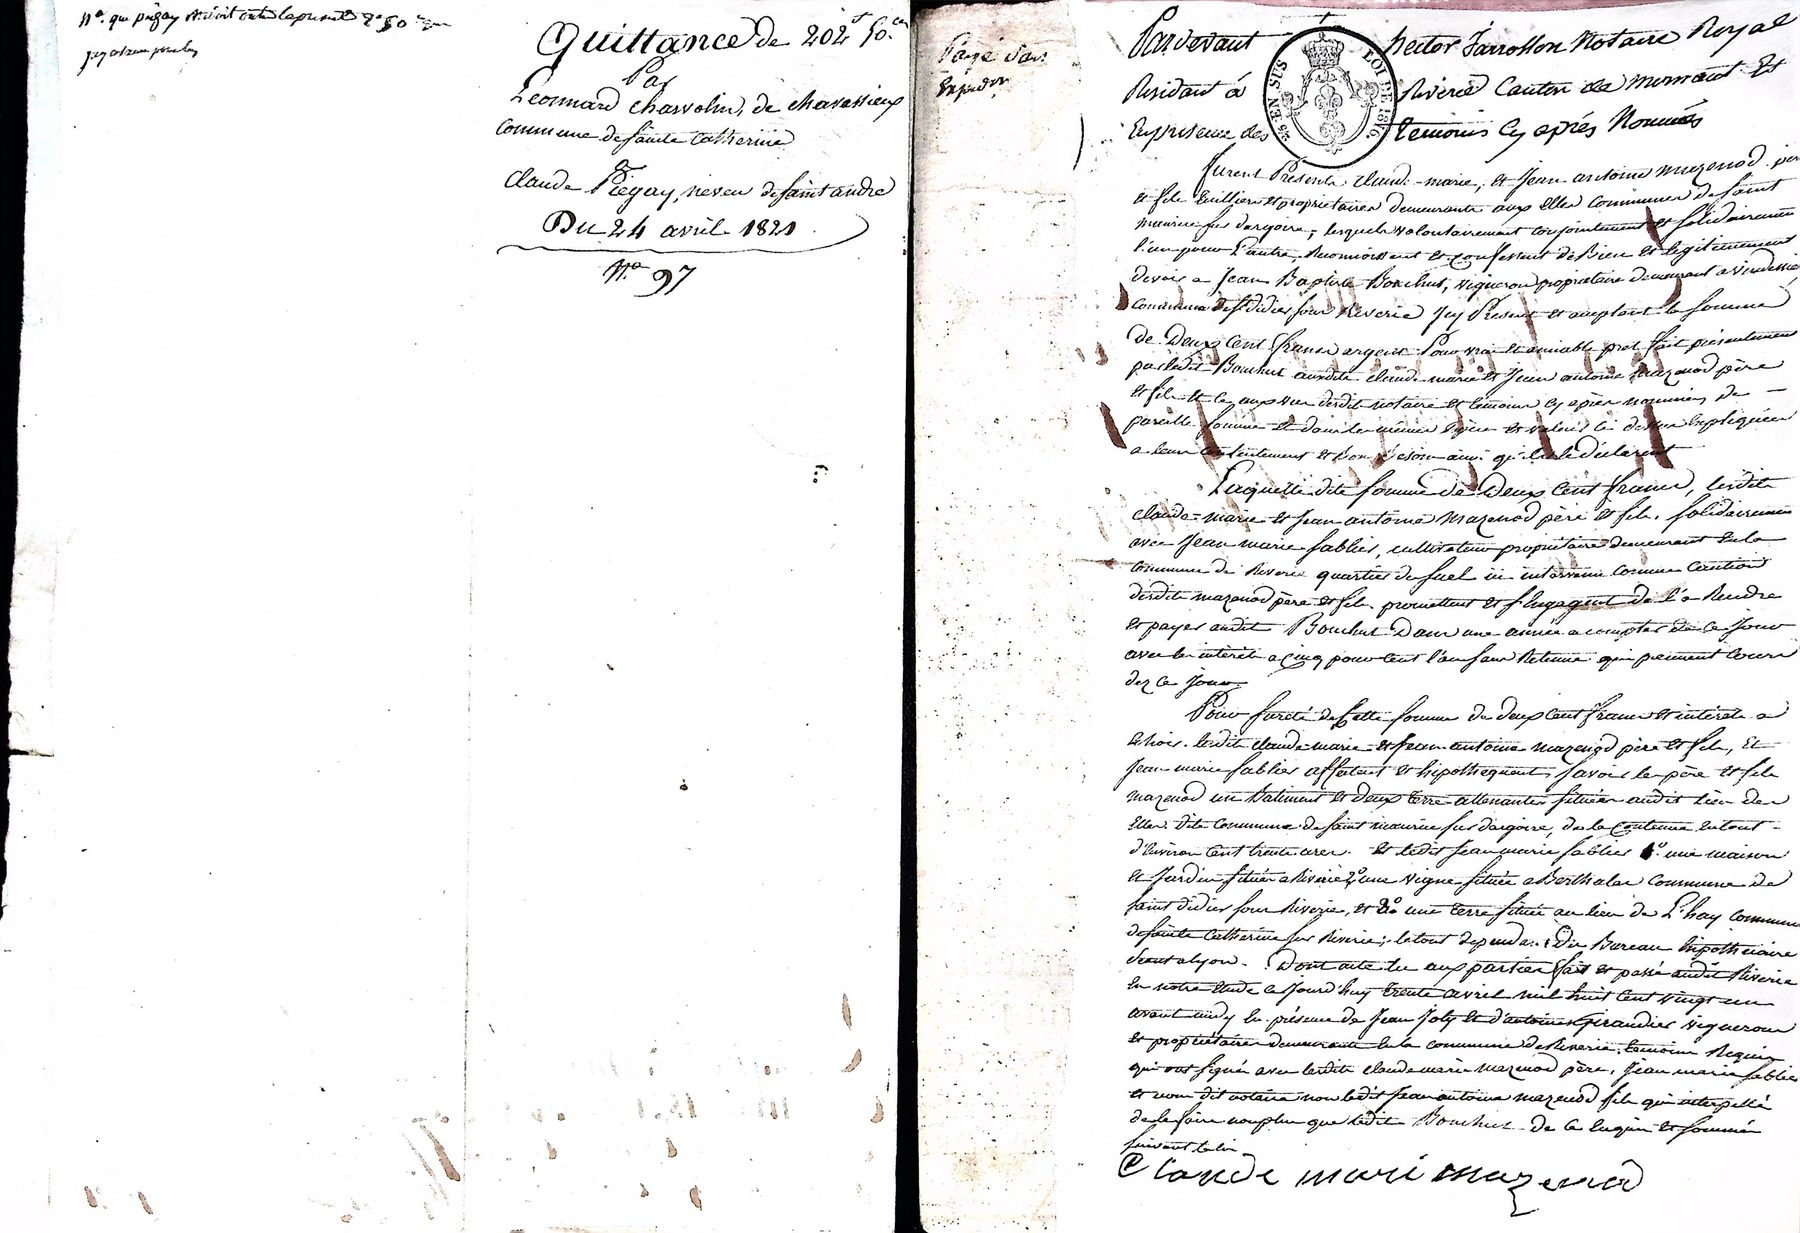 No. que piégay
Quittance de 202f 50c
Par
Leonnard chavolin, de chavassieux
Commune de Sainte Catherine
a
Claude Piégay, neveu de Saint andré
Du 24 avril 1821
No. 97
Payé d'av.
Expedon
Pardevant hector Jarrosson Notaire Royal
Residant á Riverie Canton de mornant Et
En presence des temoins Cy aprés Nommés
25 EN SUS
LOI DE 1816
furent Présents claude-marie, et Jean antoine mazenod pere
et fils tuilliers et proprietaires demeurants aux Elles commune de Saint
maurice sur dargoire, lesquels volontairement conjointement et solidairement
l'un pour l'autre, Reconnoissent et confessent de Bien et legitimement
devoir a Jean Baptiste Bouchut, vigneron proprietaire demeurant a
commune de St didier sous Riverie Icy Present et acceptant la somme
de Deux Cent francs argent Pour vrai et amiable pret fait présentement
par ledit Bouchut auxdits claude marie et Jean antoine Mazenod père
et fils et ce aux vus desdits notaire et témoins Cy après nommés, de
pareille somme et dans les mêmes espèces et valeurs ci dessus Expliquées
a leur contentement et ainsi qu'ils le déclarent
Laquelle dite somme de Deux Cent francs, lesdits
claude-marie et Jean antoine Mazenod père et fils, solidairement
avec Jean marie fablier, cultivateur proprietaire demeurant En la
commune de Riverie quartier du fuel ici intervenu comme Caution
desdits mazenod père et fils, promettent et s'Engagent de l'a Rendre
et payer audit Bouchut Dans une année a compter de ce Jour
avec les intérêts a Cinq pour Cent l'an sans Retenue qui prennent Cours
dez ce Jour.
Pour sureté de Cette somme de deux Cent francs et intérêts a
Echoir, lesdits claude-marie et Jean-antoine mazenod père et fils, Et
Jean-marie fablier affectent et hipothequent, savoir les père et fils
mazenod un Batiment et deux terres attenantes situées audit lieu des
Elles dite Commune de Saint maurice sur dargoire, de la Contenue en tout
d'Environ Cent trente ares. Et ledit Jean marie fablier 1o. une maison
et Jardin situés a Riverie, 2o une vigne située a Berthalas commune de
saint didier sous Riverie, et 3o une terre située au lieu de L'hay commune
de Sainte Catherine sur Riverie; le tout dependant du Bureau hipothecaire
seant a lyon. Dont acte lu aux parties fait et passé audit Riverie
En notre Etude ce Jourd'huy trente avril mil huit Cent vingt un
avant midy En présence de Jean Joly et d'antoine Girandier vignerons
et propriétaires demeurants En la commune de Riverie, temoins Requis
qui ont signés avec lesdits claude marie mazenod père, Jean marie fablier
et nous dit notaire non ledit Jean antoine mazenod fils qui interpellé
de le faire non plus que ledit Bouchut de ce Enquis et sommés
suivant la loi
Claude mari mazenod